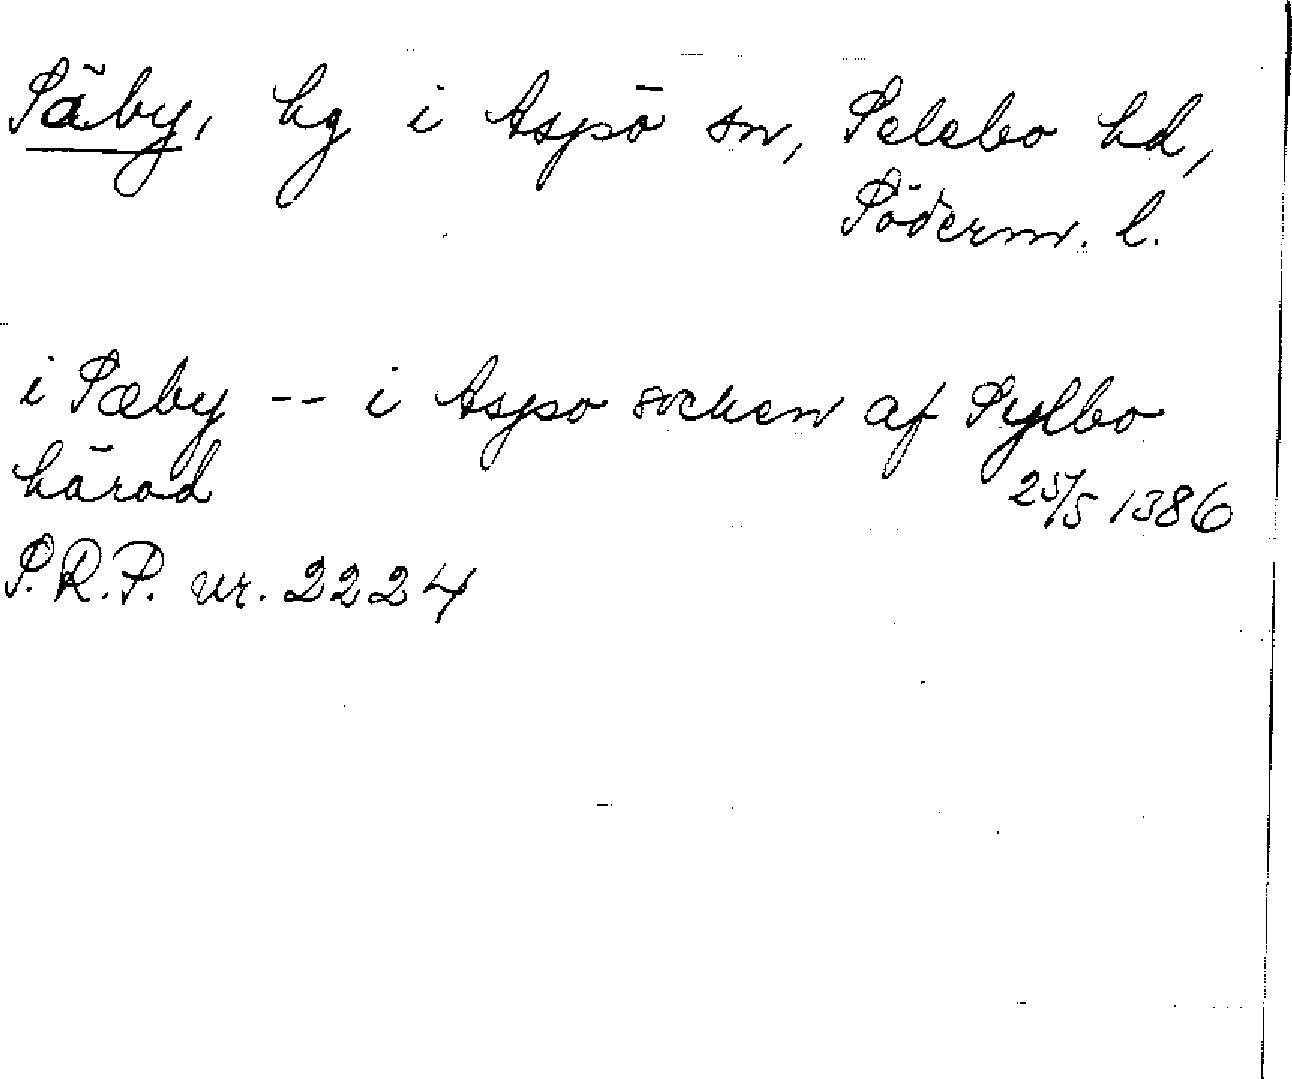 Säby, hg i Aspö sn, Selebo hd,
Söderm. l.
i Sæby -- i Aspo socken af Sylbo
härad
25/5 1386
S.R.P. nr. 2224